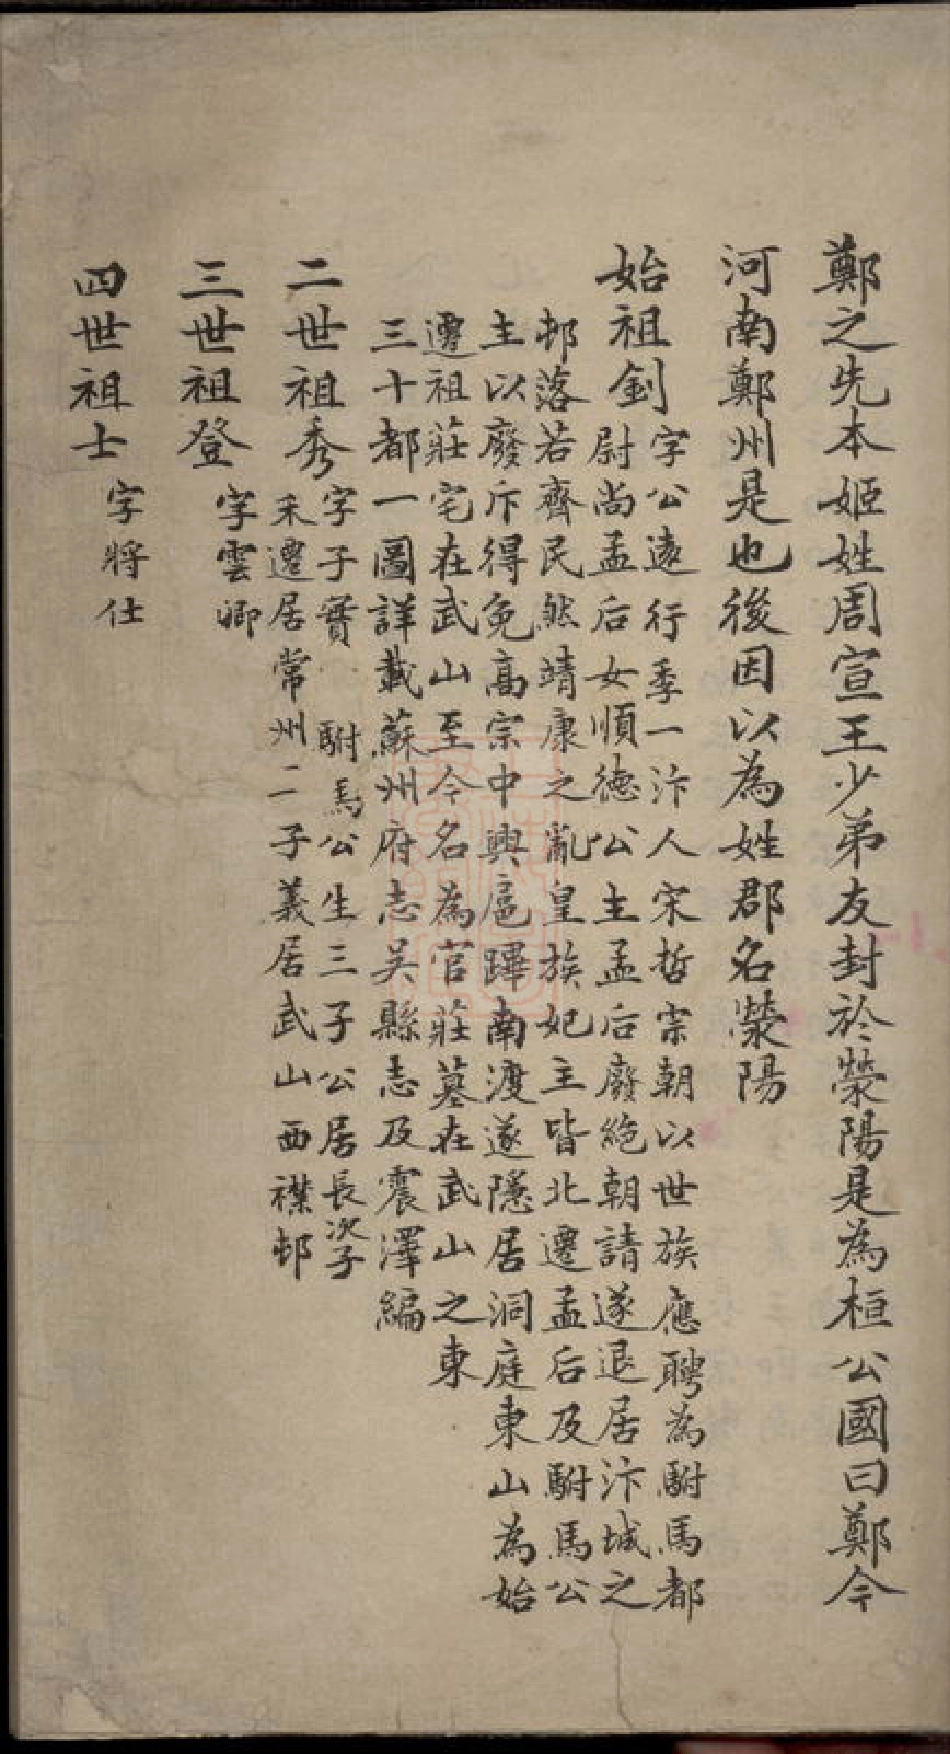 鄭之先本姬姓周宣王少弟友封於滎陽是為桓公國曰鄭今
河南鄭州是也後因以為姓郡名滎陽
始祖釗字公遠行季一汴人宋哲宗朝以世族應聘為駙馬都
尉尚孟后女順德公主孟后廢絶朝請遂退居汴城之
邨落若齊民然靖康之亂皇族妃主皆北遷孟后及駙馬公
主以廢斥得免高宗中興扈蹕南渡遂隱居洞庭東山為始
遷祖莊宅在武山至今名為官莊墓在武山之東
三十都一圖詳載蘇州府志吳縣志及震澤編
二世祖秀字子實 駙馬公生三子公居長次子
釆遷居常州二子義居武山西襟邨
三世祖登字雲卿
四世祖士字將仕